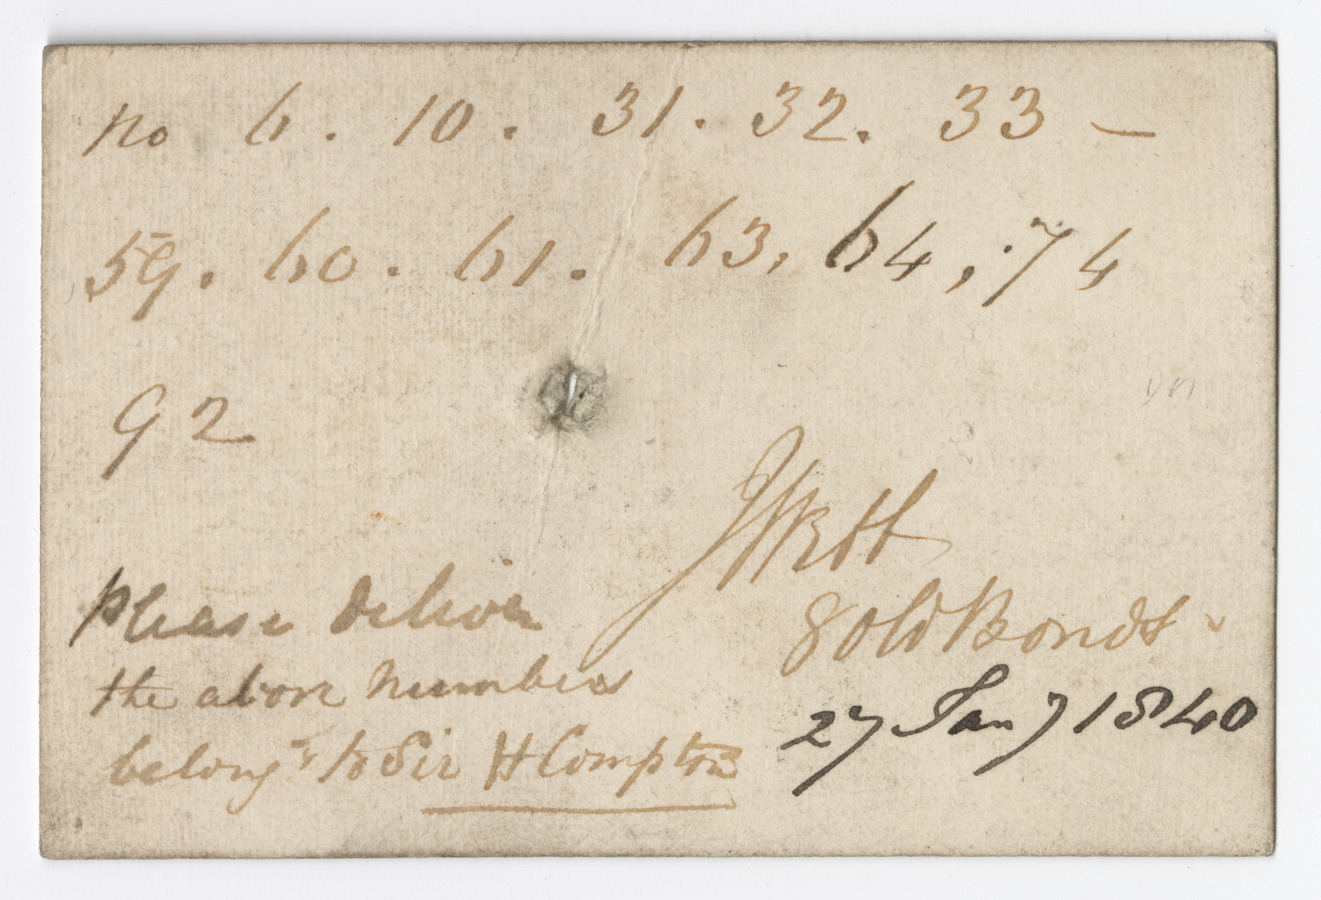 no 6. 10. 31. 32. 33 —
59. 60. 61. 63, 64, 74
92
Please deliver
the above numbers
belong^g to Sir H Compton
Gold Bonds
27 Jany 1840